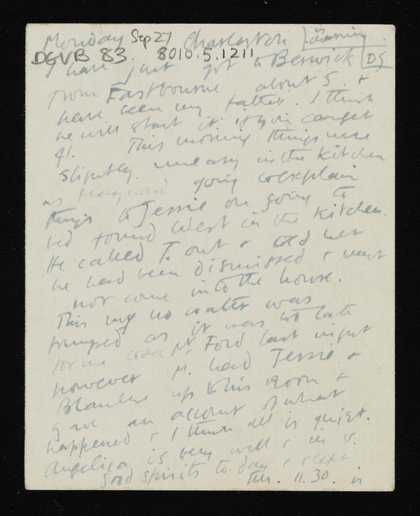 Monday Sep 27 Charleston [evening]
DGVB 83. 8010.5.1211
I have just got to Berwick [DG
from Eastbourne about 5. &
have seen my father. I think
he will start it if you can get
41. This morning things were
slightly uneasy in the kitchen
as going to explain
things to Jessie on going to
bed found West in the kitchen.
He called T. out & told her
he had been dismissed & must
not come into the house.
This no water was
pumped as it was too late
for me Ford last night
However M. had Jessie &
Blanche up to his room &
gave an account of what
happened & I think all is quiet.
Angelica is very well & in v.
good spirits to day &
the 11.30. is